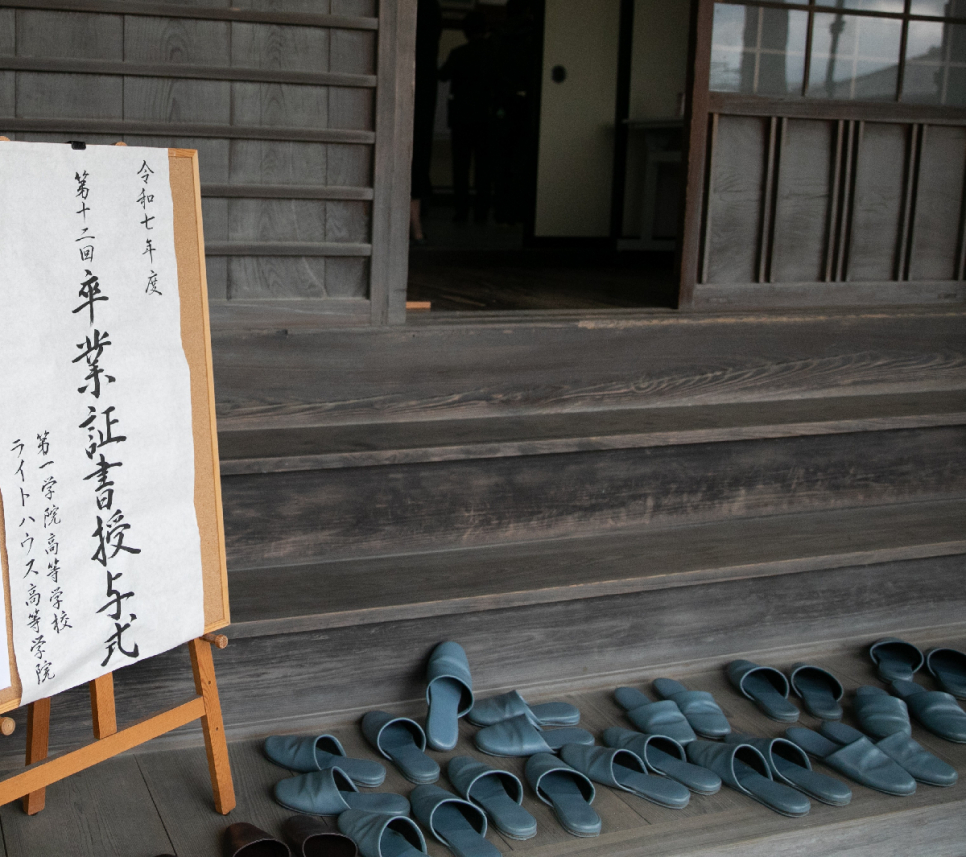 令和七年度
第十二回 卒業証書授与式
第一学院高等学校
ライトハウス高等学院